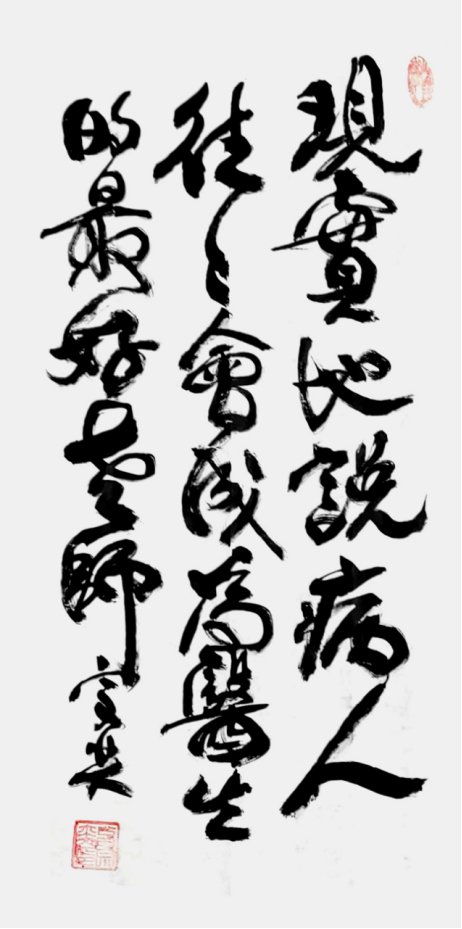 現實地説病人
往々會成為醫生
的最好老師